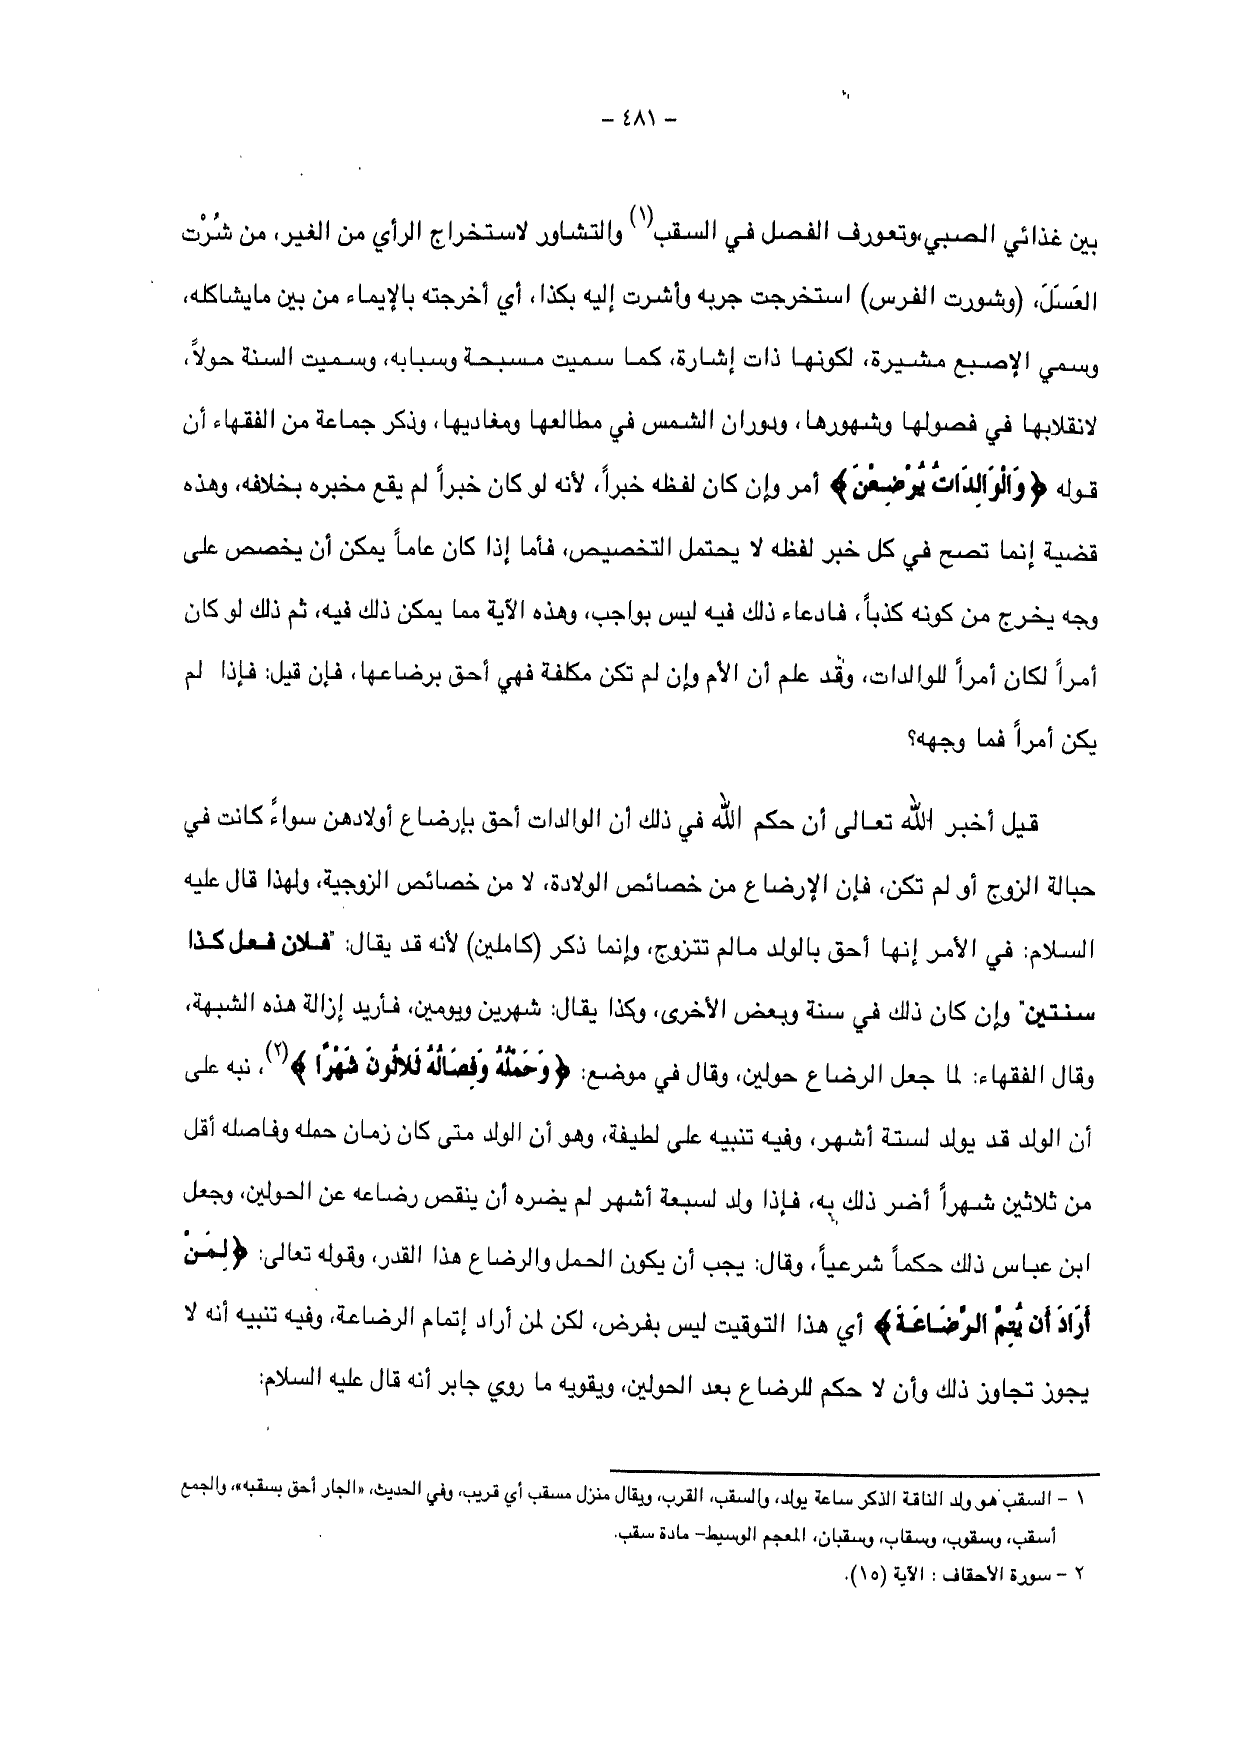 - ٤٨١ -
بين غذائي الصبي،وتعورف الفصل في السقب(١) والتشاور لاستخراج الرأي من الغير، من شُرْت
العَسَلَ، (وشورت الفرس) استخرجت جربه وأشرت إليه بكذا، أي أخرجته بالإيماء من بين مايشاكله،
وسمي الإصبع مشيرة، لكونها ذات إشارة، كما سميت مسبحة وسبابه، وسميت السنة حولاً،
لانقلابها في فصولها وشهورها، ودوران الشمس في مطالعها ومغاديها، وذكر جماعة من الفقهاء أن
قوله ﴿وَالْوَالِدَاتُ يُرْضِعْنَ﴾ أمر وإن كان لفظه خبراً، لأنه لو كان خبراً لم يقع مخبره بخلافه، وهذه
قضية إنما تصح في كل خبر لفظه لا يحتمل التخصيص، فأما إذا كان عاماً يمكن أن يخصص على
وجه يخرج من كونه كذباً، فادعاء ذلك فيه ليس بواجب، وهذه الآية مما يمكن ذلك فيه، ثم ذلك لو كان
أمراً لكان أمراً للوالدات، وقد علم أن الأم وإن لم تكن مكلفة فهي أحق برضاعها، فإن قيل: فإذا لم
يكن أمراً فما وجهه؟
قيل أخبر الله تعالى أن حكم الله في ذلك أن الوالدات أحق بإرضاع أولادهن سواءً كانت في
حبالة الزوج أو لم تكن، فإن الإرضاع من خصائص الولادة، لا من خصائص الزوجية، ولهذا قال عليه
السلام: في الأمر إنها أحق بالولد مالم تتزوج، وإنما ذكر (كاملين) لأنه قد يقال: "فلان فعل كذا
سنتين" وإن كان ذلك في سنة وبعض الأخرى، وكذا يقال: شهرين ويومين، فأريد إزالة هذه الشبهة،
وقال الفقهاء: لما جعل الرضاع حولين، وقال في موضع: ﴿وَحَمْلُهُ وَفِصَالُهُ ثَلَاثُونَ شَهْرًا﴾(٢)، نبه على
أن الولد قد يولد لستة أشهر، وفيه تنبيه على لطيفة، وهو أن الولد متى كان زمان حمله وفاصله أقل
من ثلاثين شهراً أضر ذلك به، فإذا ولد لسبعة أشهر لم يضره أن ينقص رضاعه عن الحولين، وجعل
ابن عباس ذلك حكماً شرعياً، وقال: يجب أن يكون الحمل والرضاع هذا القدر، وقوله تعالى: ﴿لِمَنْ
أَرَادَ أَن يُتِمَّ الرَّضَاعَةَ﴾ أي هذا التوقيت ليس بفرض، لكن لمن أراد إتمام الرضاعة، وفيه تنبيه أنه لا
يجوز تجاوز ذلك وأن لا حكم للرضاع بعد الحولين، ويقويه ما روي جابر أنه قال عليه السلام:
١ - السقب هو ولد الناقة الذكر ساعة يولد، والسقب، القرب، ويقال منزل مسقب أي قريب، وفي الحديث، «الجار أحق بسقبه»، والجمع
أسقب، وسقوب، وسقاب، وسقبان، المعجم الوسيط- مادة سقب.
٢ - سورة الأحقاف : الآية (١٥).